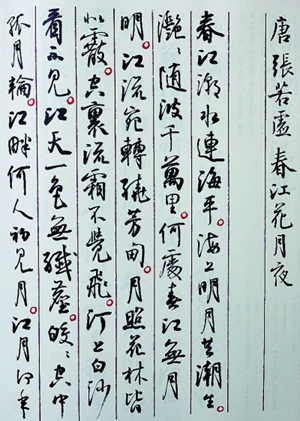 唐 張若虛 春江花月夜
春江潮水連海平。海上明月共潮生。
灩〻隨波千萬里。何處春江無月
明。江流宛轉繞芳甸。月照花林皆
似霰。空裏流霜不覺飛。汀上白沙
看不見。江天一色無纖塵。皎〻空中
孤月輪。江畔何人初見月。江月何年